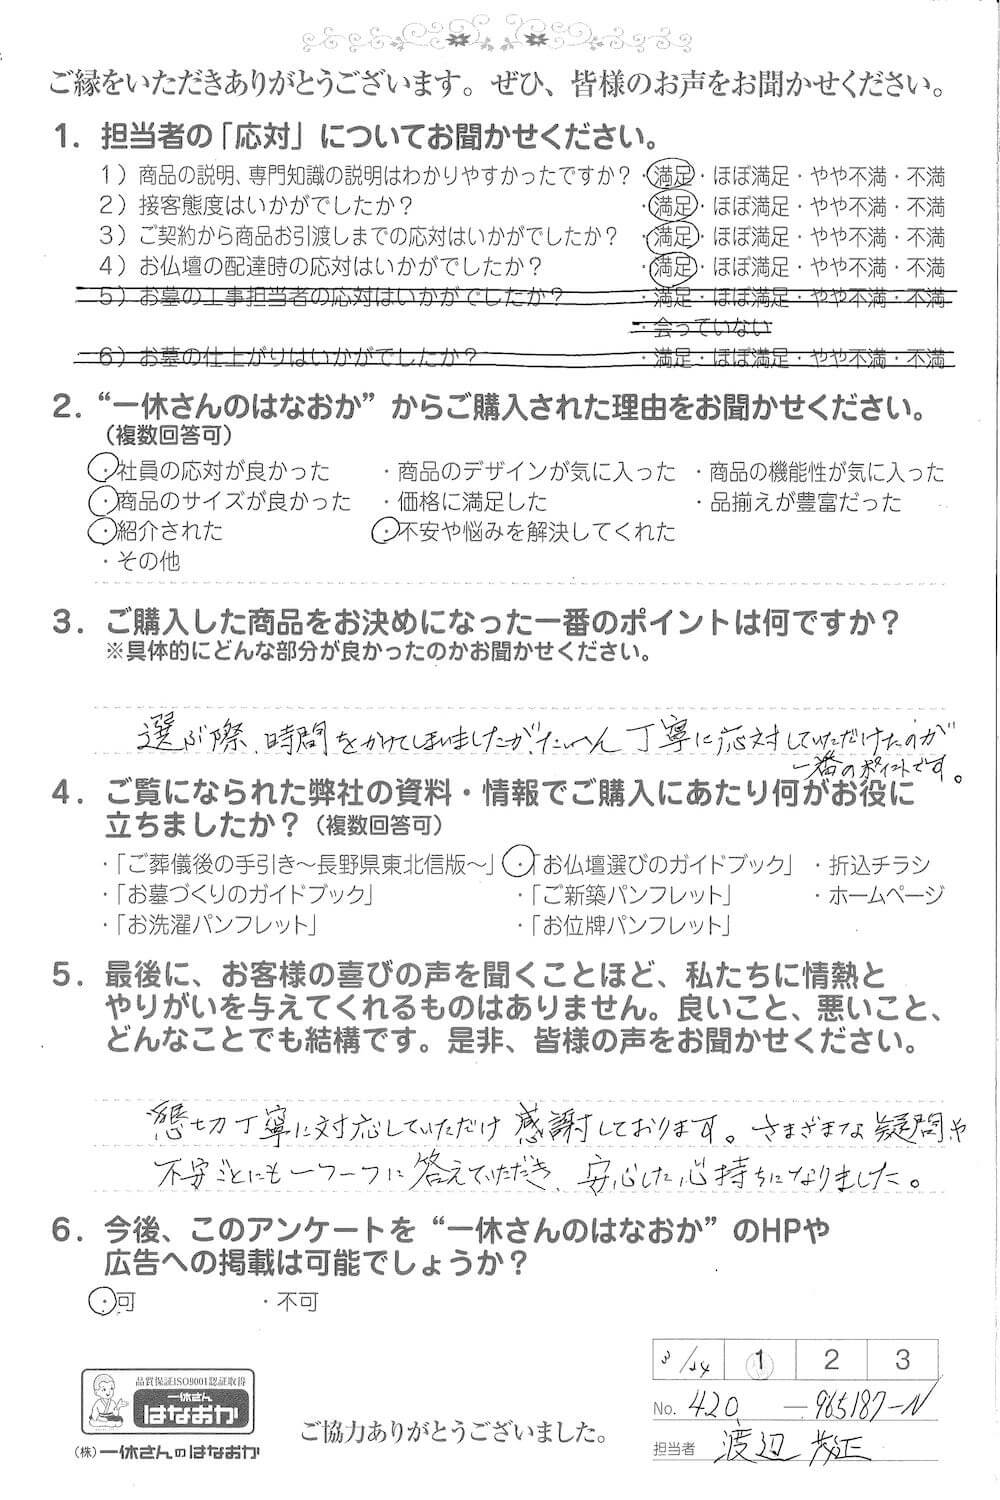 ご縁をいただきありがとうございます。ぜひ、皆様のお声をお聞かせください。
1．担当者の「応対」についてお聞かせください。
1）商品の説明、専門知識の説明はわかりやすかったですか？・満足・ほぼ満足・やや不満・不満
2）接客態度はいかがでしたか？ ・満足・ほぼ満足・やや不満・不満
3）ご契約から商品お引渡しまでの応対はいかがでしたか？ ・満足・ほぼ満足・やや不満・不満
4）お仏壇の配達時の応対はいかがでしたか？ ・満足・ほぼ満足・やや不満・不満
5）お墓の工事担当者の応対はいかがでしたか？ ・満足・ほぼ満足・やや不満・不満
・会っていない
6）お墓の仕上がりはいかがでしたか？ ・満足・ほぼ満足・やや不満・不満
2．“一休さんのはなおか”からご購入された理由をお聞かせください。
（複数回答可）
・社員の応対が良かった ・商品のデザインが気に入った ・商品の機能性が気に入った
・商品のサイズが良かった ・価格に満足した ・品揃えが豊富だった
・紹介された ・不安や悩みを解決してくれた
・その他
3．ご購入した商品をお決めになった一番のポイントは何ですか？
※具体的にどんな部分が良かったのかお聞かせください。
選ぶ際、時間をかけてしまいましたがたいへん丁寧に応対していただけたのが
一番のポイントです。
4．ご覧になられた弊社の資料・情報でご購入にあたり何がお役に
立ちましたか？（複数回答可）
・「ご葬儀後の手引き～長野県東北信版～」 ・「お仏壇選びのガイドブック」 ・折込チラシ
・「お墓づくりのガイドブック」 ・「ご新築パンフレット」 ・ホームページ
・「お洗濯パンフレット」 ・「お位牌パンフレット」
5．最後に、お客様の喜びの声を聞くことほど、私たちに情熱と
やりがいを与えてくれるものはありません。良いこと、悪いこと、
どんなことでも結構です。是非、皆様の声をお聞かせください。
懇切丁寧に対応していただけ感謝しております。さまざまな疑問や
不安ごとにも一つ一つに答えていただき、安心した心持ちになりました。
6．今後、このアンケートを“一休さんのはなおか”のHPや
広告への掲載は可能でしょうか？
・可 ・不可
3/14 1 2 3
No. 420 －965187-N
担当者 渡辺 茂正
品質保証ISO9001認証取得
一休さん
はなおか
（株）一休さんのはなおか
ご協力ありがとうございました。